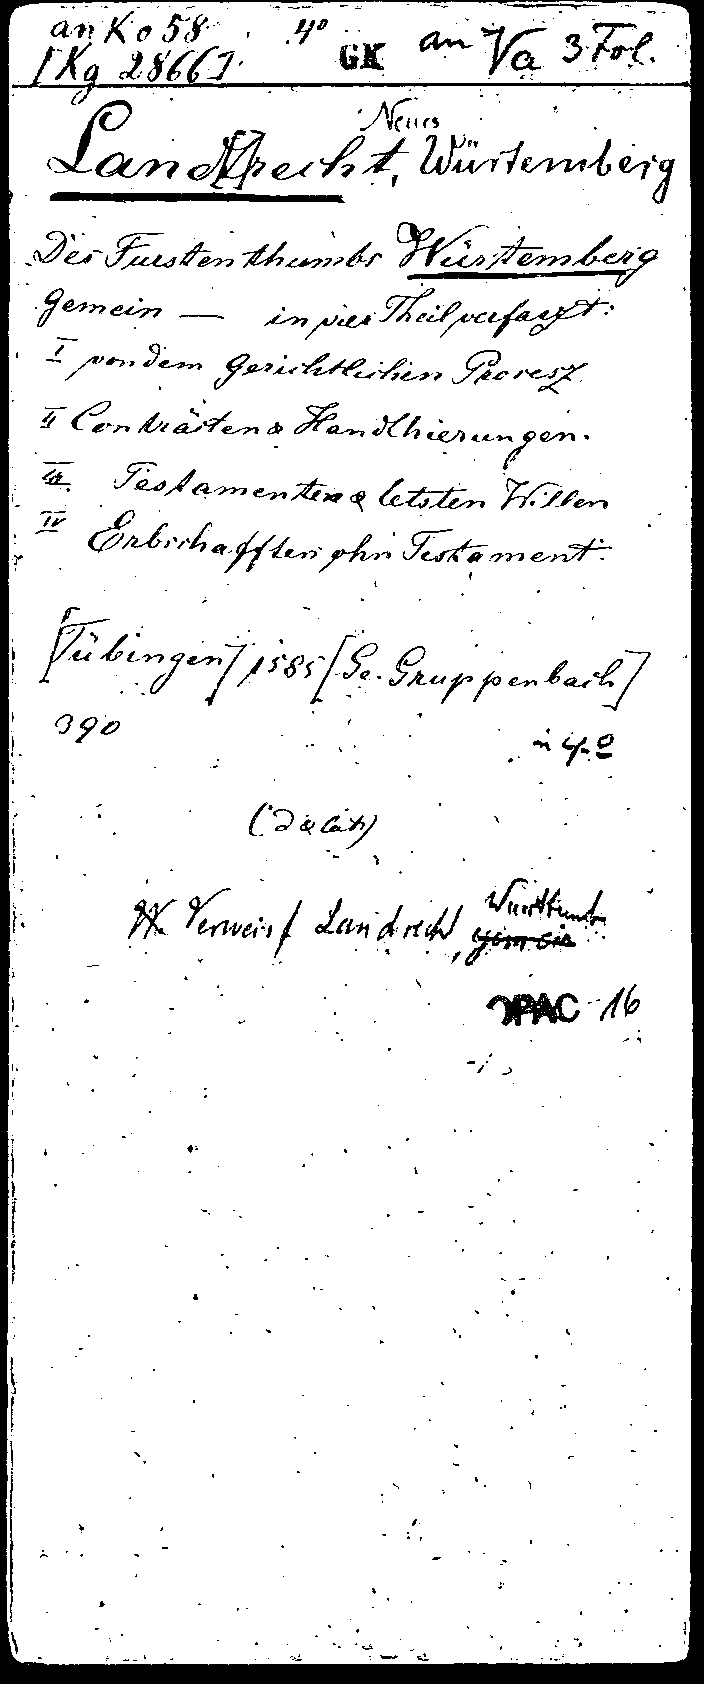 an Ko 58 4° GK an Va 3 Fol.
[Kg 2866].
Neues
Landtrecht, Würtemberg
Des Furstenthumbs Würtemberg
gemein — in vier Theil verfaszt:
I von dem gerichtlichen Procesz
II Conträcten & Handthierungen.
III. Testamenten & letsten Willen
IV Erbschafften ohn Testament.
[Tübingen] 1585 [Ge. Gruppenbach]
390 in 4.°
(d & lat)
Verweis f Landrecht, Württemb
OPAC 16